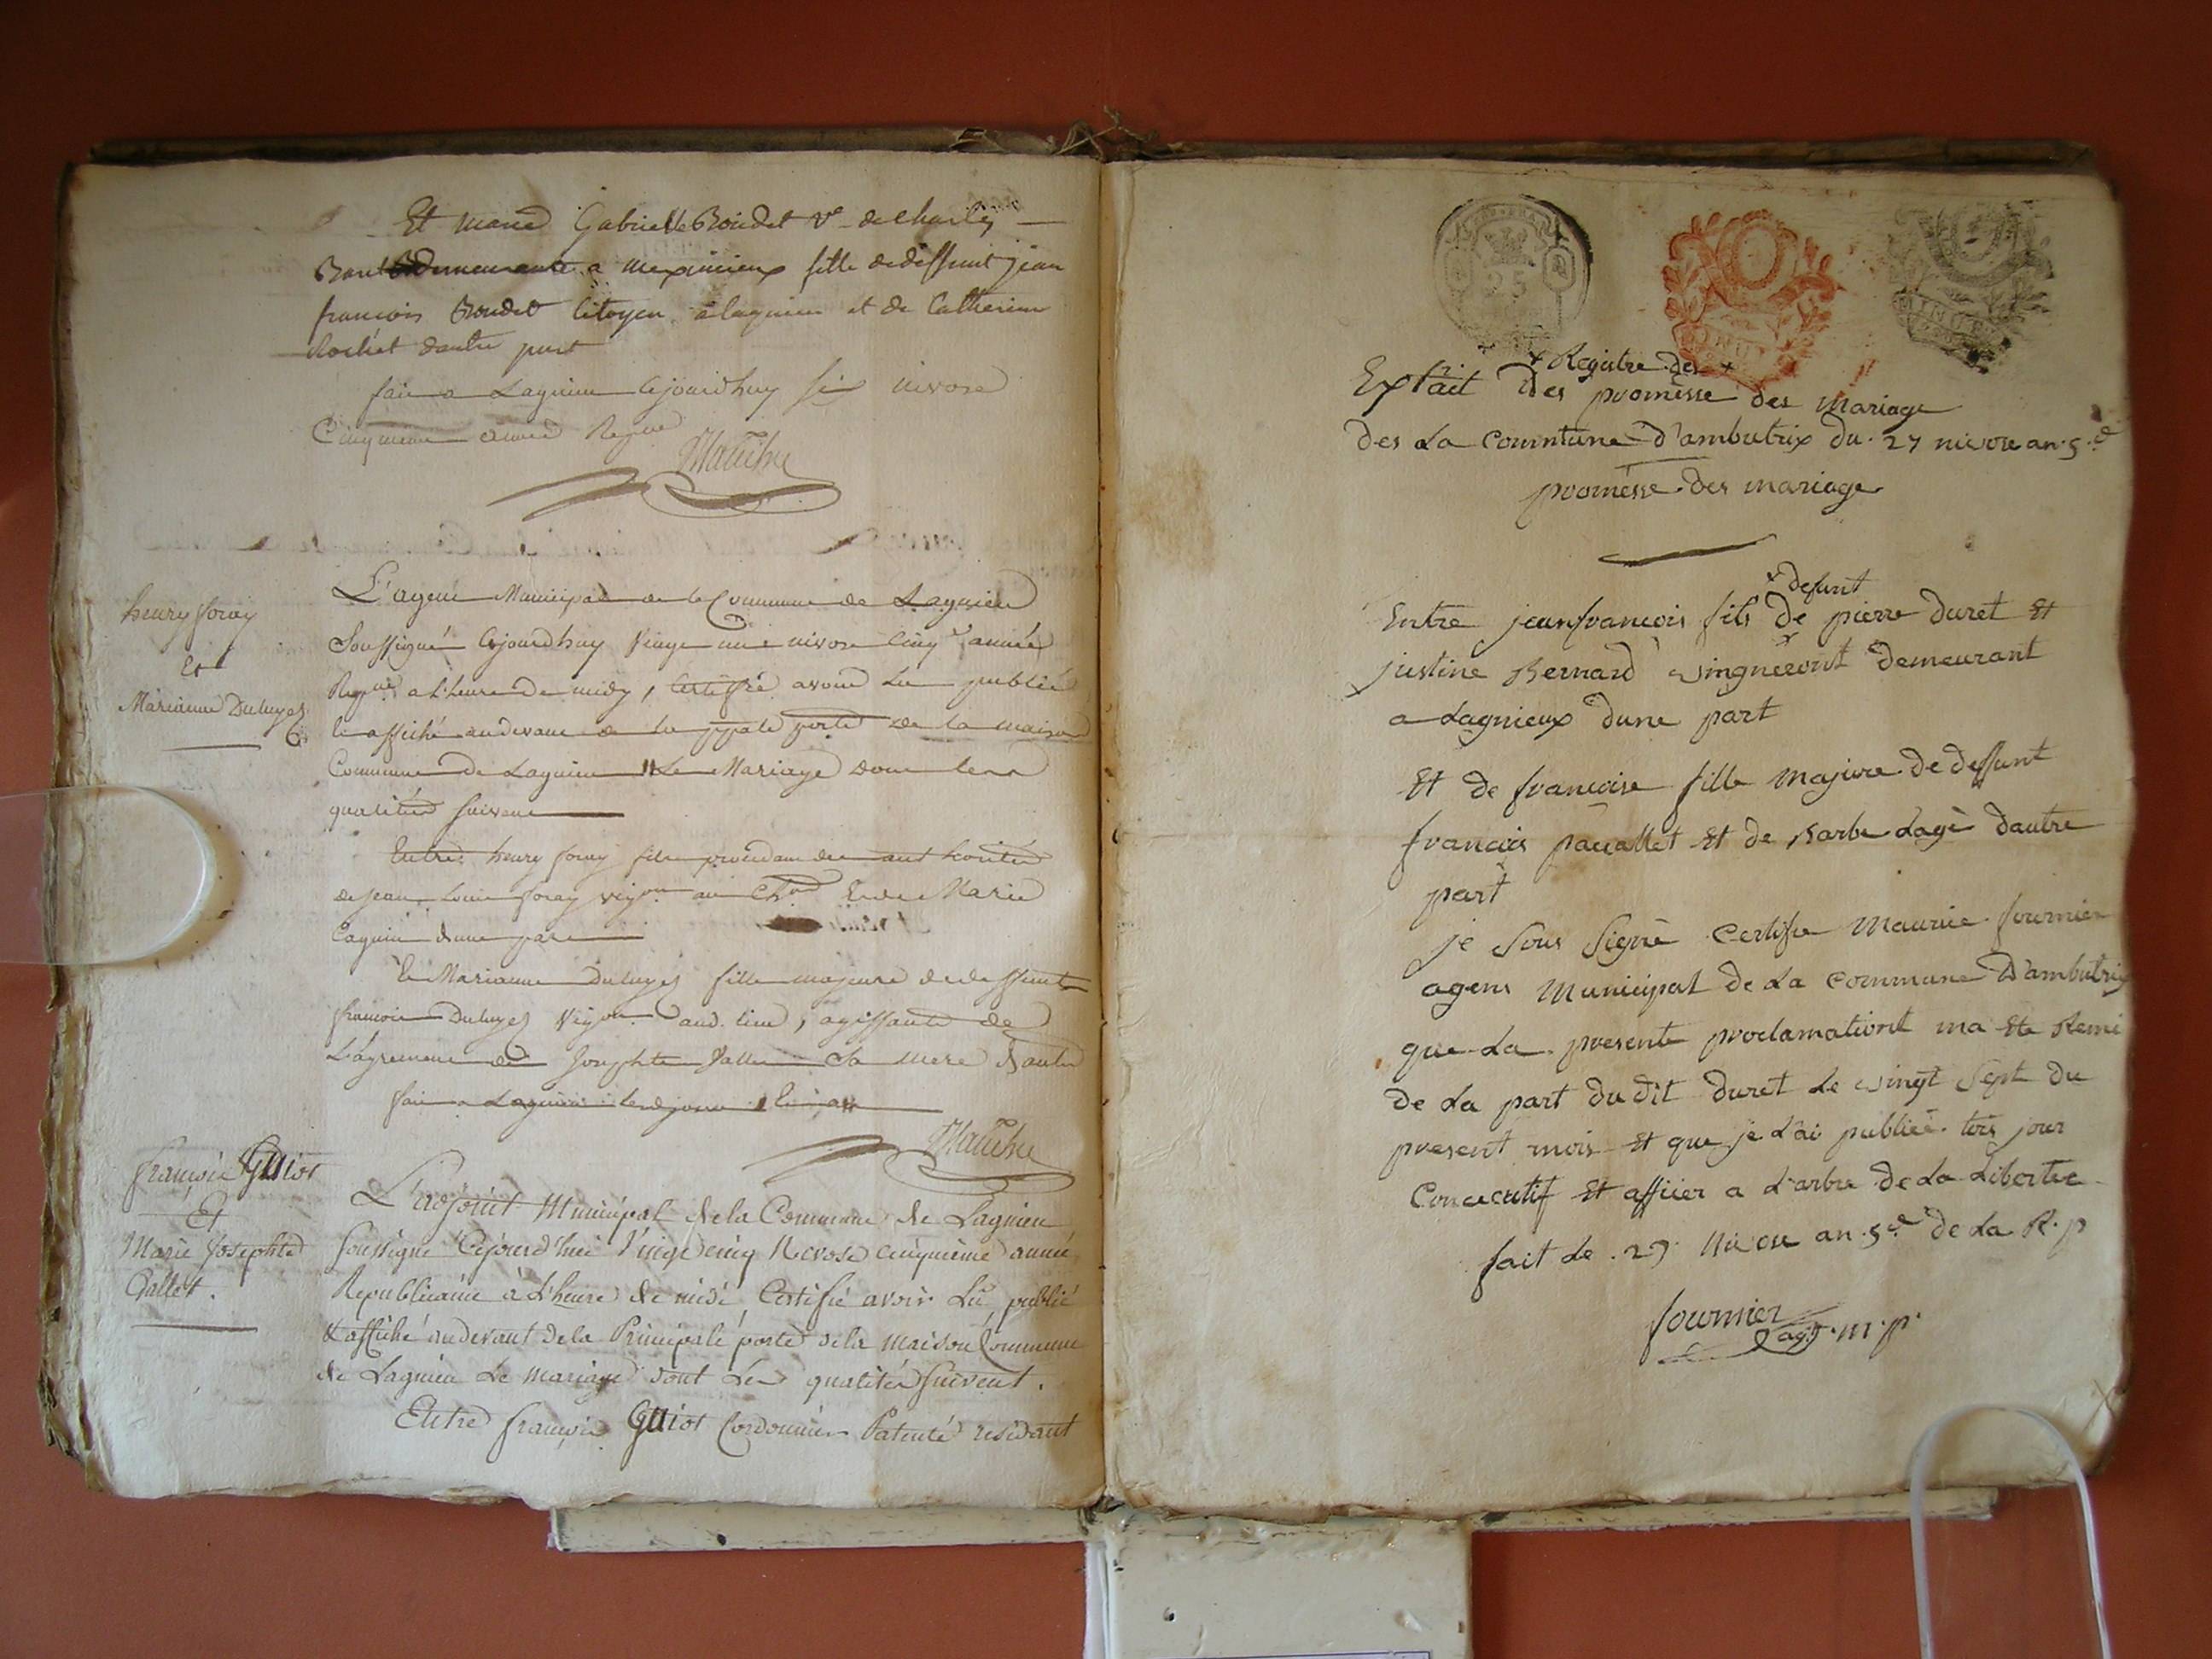 Et marie Gabrielle Brondet Ve. de Charles
demeurante a meximieux fille de deffunt jean
francois Brondet Citoyen a lagnieu et de Catherine
Rochet dautre part
fait a Lagnieu Cejourdhuy six nivose
Cinquieme année Repue
henry foray
Et
Marianne
L'agent Municipal de la Commune de Lagnieu
Soussigné Cejourdhuy Vingt un nivose Cinqe année
Repue a L'heure de midy, Certiffie avoir Lu publié
et affiché audevant de la ppale porte de la maison
Commune de Lagnieu Le Mariage dont les
qualités suivent
Entre henry foray fils
de jean Louis foray Et de Marie
dune part
Et Marianne fille majeure de deffunt
francois aud. lieu, agissante de
L'agrement de Josephte sa mere dautre
fait a Lagnieu
francois Guiot
Et
Marie Josephte
Gallet.
L'adjoint Municipal de la Commune de Lagnieu
soussigné Cejourd'hui Vingt cinq Nivose cinquieme année
Republicaine à L'heure de midi Certifie avoir Lû, publié
& affiché audevant de la Principale porte de la maison Commune
de Lagnieu Le mariage dont Les qualités suivent.
Entre francois Guiot Cordonnier Patenté résidant
25
MINUTE
+ Registre des +
Extrait des promesse des mariage
des La Commune d'ambutrix du. 27 nivose an. 5.e
promesse des mariage
+ defunt
Entre jeanfrancois fils de pierre duret Et
justine Bernard vingneront demeurant
a Lagnieux dune part
Et de francoise fille majeure de deffunt
francois pavallet Et de Barbe Lagè dautre
part
je sous signè certifie maurice fournier
agens municipal de La commune D'ambutrix
que La presente proclamationt ma Ete Remi
de La part du dit duret Le vingt sept du
present mois Et que je L'ai publieé tois jour
Concecutif Et affiier a L'arbre de La Libertee
fait Le. 29. Nivose an. 5e. de La R. p
fournier
agt. m. p.